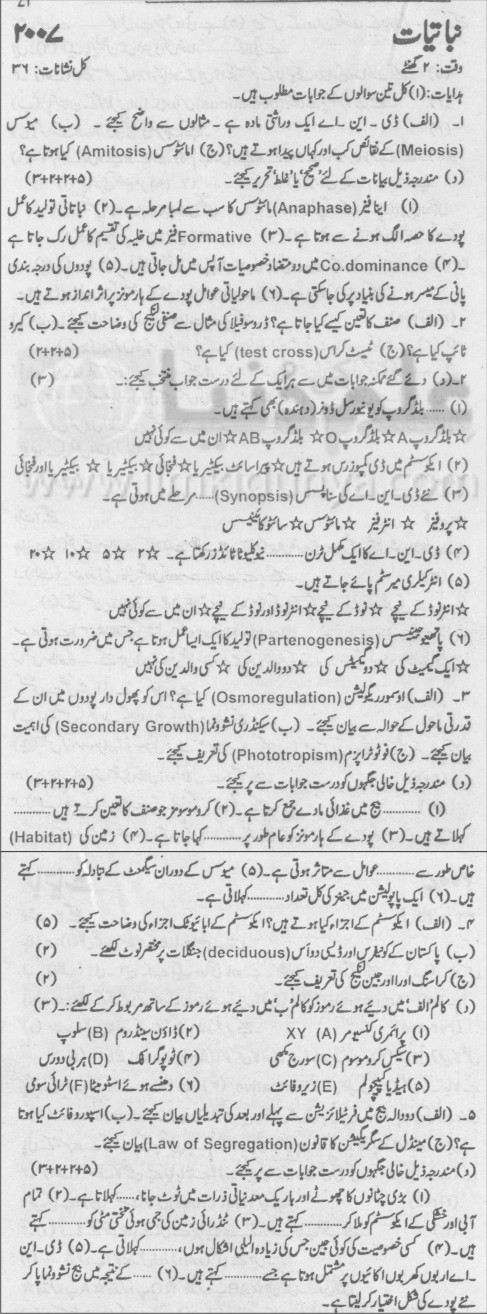 نباتیات ۲۰۰۷
وقت: ۲ گھنٹے کل نشانات: ۳۶
ہدایات: (۱) کل تین سوالوں کے جوابات مطلوب ہیں۔
۱۔ (الف) ڈی۔ این۔ اے ایک وراثتی مادہ ہے۔ مثالوں سے واضح کیجئے۔ (ب) میوسس
(Meiosis) کے نقائص کب اور کہاں پیدا ہوتے ہیں؟ (ج) امائٹوسس (Amitosis) کیا ہوتا ہے؟
(د) مندرجہ ذیل بیانات کے لئے ’صحیح‘ یا ’غلط‘ تحریر کیجئے۔ (۳+۲+۲+۵)
(۱) اینا فیز (Anaphase) مائٹوسس کا سب سے لمبا مرحلہ ہے۔ (۲) نباتاتی تولید کا عمل
پودے کا حصہ الگ ہونے سے ہوتا ہے۔ (۳) Formative فیز میں خلیہ کی تقسیم کا عمل رک جاتا ہے
۔ (۴) Co.dominance میں دو متضاد خصوصیات آپس میں مل جاتی ہیں۔ (۵) پودوں کی درجہ بندی
پانی کے میسر ہونے کی بنیاد پر کی جا سکتی ہے۔ (۶) ماحولیاتی عوامل پودے کے ہارمونز پر اثر انداز ہوتے ہیں۔
۲۔ (الف) صنف کا تعین کیسے کیا جاتا ہے؟ ڈروسوفیلا کی مثال سے صنفی لنکیج کی وضاحت کیجئے۔ (ب) کیرو
ٹائپ کیا ہے؟ (ج) ٹیسٹ کراس (test cross) کیا ہے؟ (۲+۲+۵)
۲۔ (د) دئے گئے ممکنہ جوابات میں سے ہر ایک کے لئے درست جواب منتخب کیجئے:۔ (۳)
(۱) ...... بلڈ گروپ کو یونیورسل ڈونر (دہندہ) بھی کہتے ہیں۔
☆ بلڈ گروپ A ☆ بلڈ گروپ O ☆ بلڈ گروپ AB ☆ ان میں سے کوئی نہیں
(۲) ایکوسسٹم میں ڈی کمپوزرس ہوتے ہیں ☆ پیراسائٹ بیکٹیریا ☆ فنجائی ☆ بیکٹیریا ☆ بیکٹیریا اور فنجائی
(۳) نئے ڈی۔ این۔ اے کی سناپسس (Synopsis) ...... مرحلے میں ہوتی ہے۔
☆ پروفیز ☆ انٹرفیز ☆ مائٹوسس ☆ سائٹوکائینیسس
(۴) ڈی۔ این۔ اے کا ایک مکمل ٹرن ............ نیوکلیوٹائڈز رکھتا ہے۔ ☆ ۲ ☆ ۵ ☆ ۱۰ ☆ ۲۰
(۵) انٹرکیلری میرسٹم پائے جاتے ہیں۔
☆ انٹرنوڈ کے نیچے ☆ نوڈ کے نیچے ☆ انٹرنوڈ اور نوڈ کے نیچے ☆ ان میں سے کوئی نہیں
(۶) پارتھینوجینیسس (Partenogenesis) تولید کا ایک ایسا عمل ہوتا ہے جس میں ضرورت ہوتی ہے۔
☆ ایک گیمیٹ کی ☆ دو گیمیٹس کی ☆ دو والدین کی ☆ کسی والدین کی نہیں
۳۔ (الف) اوسمور ریگولیشن (Osmoregulation) کیا ہے؟ اس کو پھول دار پودوں میں ان کے
قدرتی ماحول کے حوالہ سے بیان کیجئے۔ (ب) سیکنڈری نشوونما (Secondary Growth) کی اہمیت
بیان کیجئے۔ (ج) فوٹوٹراپزم (Phototropism) کی تعریف کیجئے۔
(د) مندرجہ ذیل خالی جگہوں کو درست جوابات سے پر کیجئے۔ (۳+۲+۲+۵)
(۱) ............ بیج میں غذائی مادے جمع کرتا ہے۔ (۲) کروموسومز جو صنف کا تعین کرتے ہیں ............
کہلاتے ہیں۔ (۳) پودے کے ہارمونز کو عام طور پر ............ کہا جاتا ہے۔ (۴) زمین کی (Habitat)
خاص طور سے ............ عوامل سے متاثر ہوتی ہے۔ (۵) میوسس کے دوران سیگمنٹ کے تبادلہ کو ......... کہتے
ہیں۔ (۶) ایک پاپولیشن میں جینز کی کل تعداد ............ کہلاتی ہے۔
۴۔ (الف) ایکوسسٹم کے اجزاء کیا ہوتے ہیں؟ ایکوسسٹم کے ابائیوٹک اجزاء کی وضاحت کیجئے۔ (۵)
(ب) پاکستان کے کونیفرس اور ڈیسی دواُس (deciduous) جنگلات پر مختصر نوٹ لکھئے۔ (۲)
(ج) کراسنگ اوور اور جین لنکیج کی تعریف کیجئے۔ (۲)
(د) کالم ’الف‘ میں دیئے ہوئے رموز کو کالم ’ب‘ میں دیئے ہوئے رموز کے ساتھ مربوط کر کے لکھئے:۔ (۳)
(۱) پرائمری کنسیومر (A) XY (۲) ڈاؤن سینڈروم (B) سلوپ
(۳) سیکس کروموسوم (C) سورج مکھی (۴) ٹوپوگرافک (D) ہربی وورس
(۵) ہیڈ یا کیپچولم (E) زیروفائٹ (۶) دھنسے ہوئے اسٹومیٹا (F) ٹرائی سومی
۵۔ (الف) دو دالہ بیج میں فرٹیلائزیشن سے پہلے اور بعد کی تبدیلیاں بیان کیجئے۔ (ب) اسپوروفائٹ کیا ہوتا
ہے؟ (ج) مینڈل کے سگریگیشن کا قانون (Law of Segregation) بیان کیجئے۔
(د) مندرجہ ذیل خالی جگہوں کو درست جوابات سے پر کیجئے۔ (۳+۲+۲+۵)
(۱) بڑی چٹانوں کا چھوٹے اور باریک معدنیاتی ذرات میں ٹوٹ جانا، ...... کہلاتا ہے۔ (۲) تمام
آبی اور خشکی کے ایکوسسٹم کو ملا کر ............ کہتے ہیں۔ (۳) ٹنڈرائی زمین کی جمی ہوئی نچلی مٹی کو ............ کہتے
ہیں۔ (۴) کسی خصوصیت کی کوئی جین جس کی زیادہ الیلی اشکال ہوں، ............ کہلاتی ہے۔ (۵) ڈی۔ این
۔ اے اربوں کھربوں اکائیوں پر مشتمل ہوتا ہے جسے ............ کہتے ہیں۔ (۶) ...... کے نتیجہ میں بیج نشوونما پا کر
نئے پودے کی شکل اختیار کر لیتا ہے۔